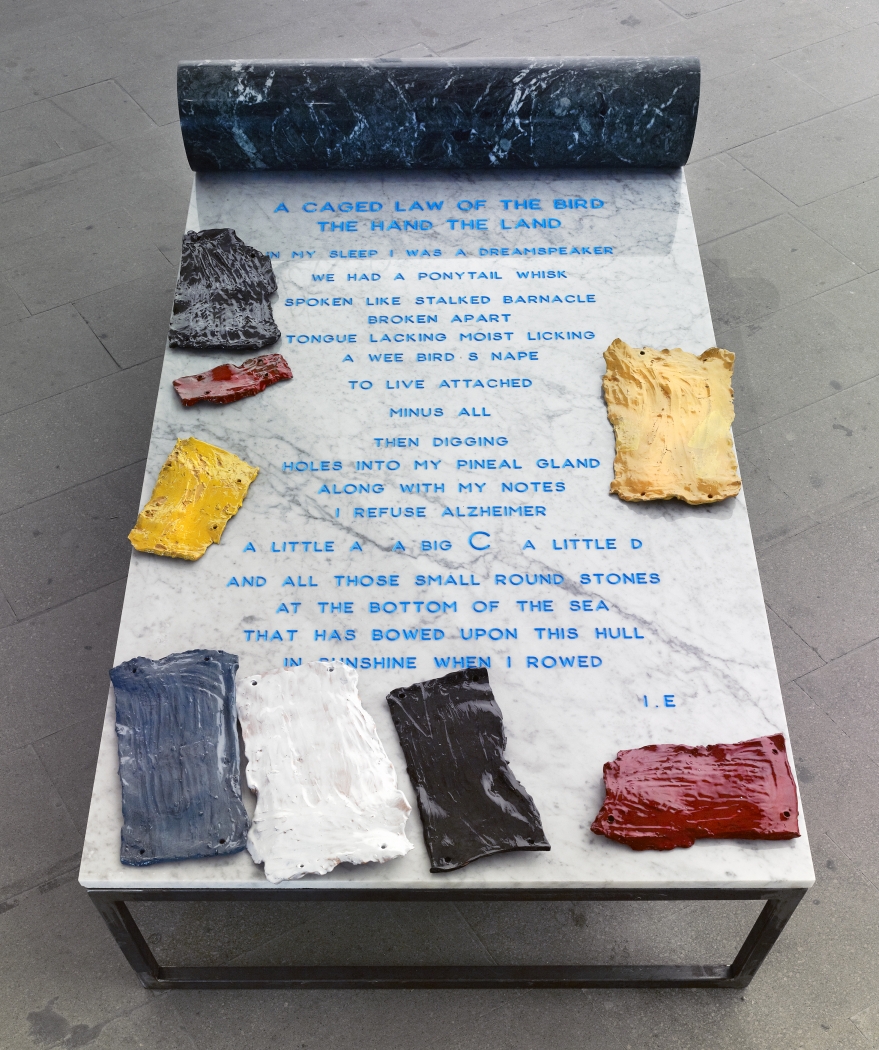 A CAGED LAW OF THE BIRD
THE HAND THE LAND
IN MY SLEEP I WAS A DREAMSPEAKER
WE HAD A PONYTAIL WHISK
SPOKEN LIKE STALKED BARNACLE
BROKEN APART
TONGUE LACKING MOIST LICKING
A WEE BIRD S NAPE
TO LIVE ATTACHED
MINUS ALL
THEN DIGGING
HOLES INTO MY PINEAL GLAND
ALONG WITH MY NOTES
I REFUSE ALZHEIMER
A LITTLE A A BIG C A LITTLE D
AND ALL THOSE SMALL ROUND STONES
AT THE BOTTOM OF THE SEA
THAT HAS BOWED UPON THIS HULL
IN SUNSHINE WHEN I ROWED
I.E